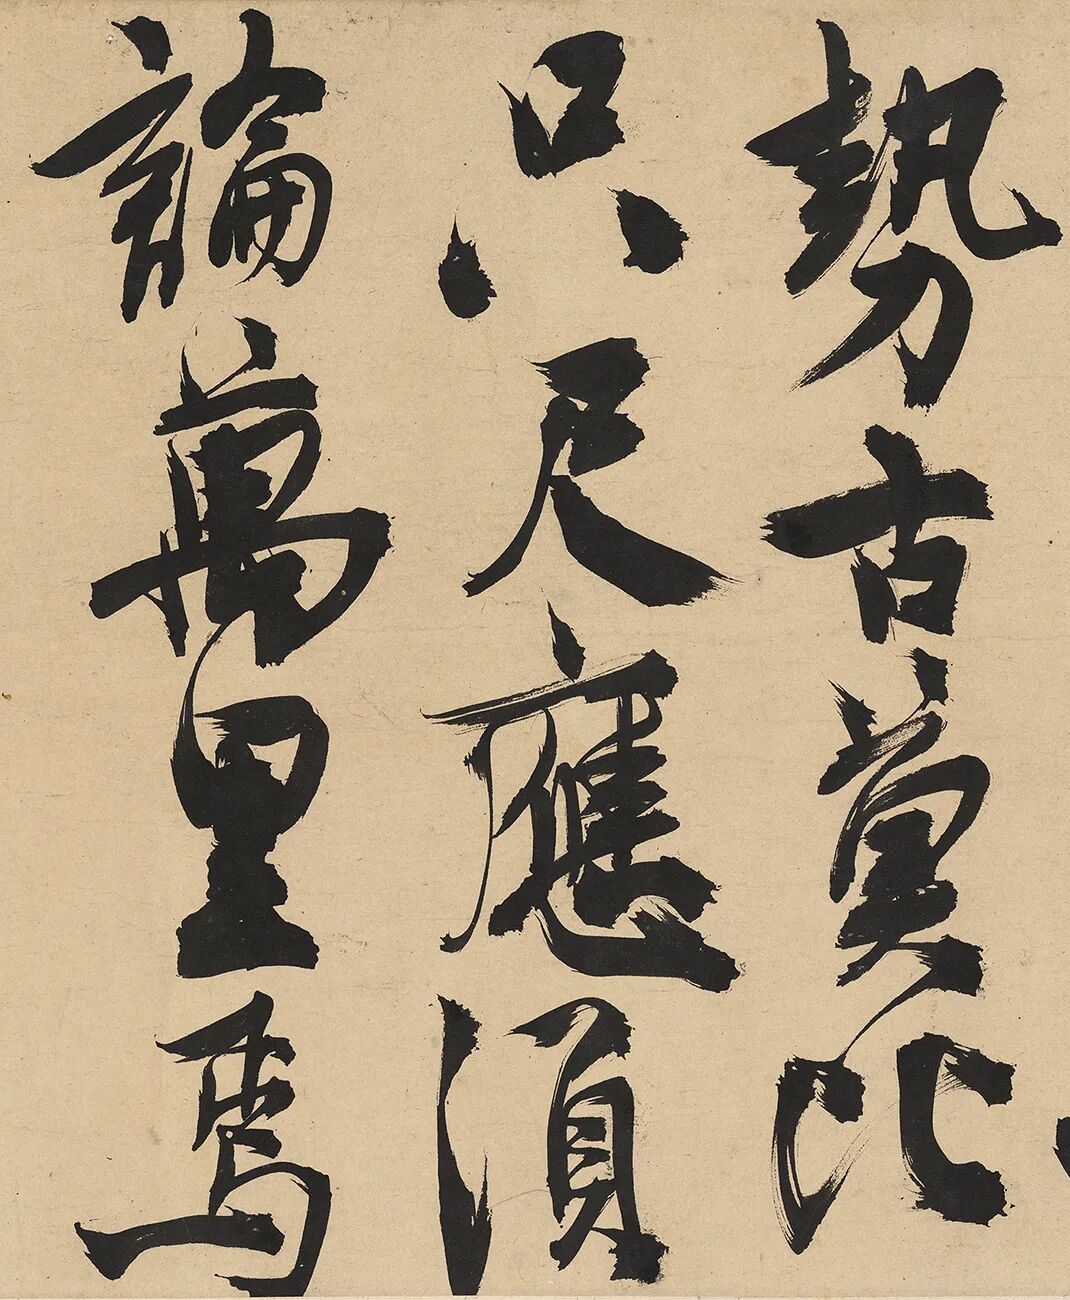 勢古莫比
只尺應須
論萬里焉